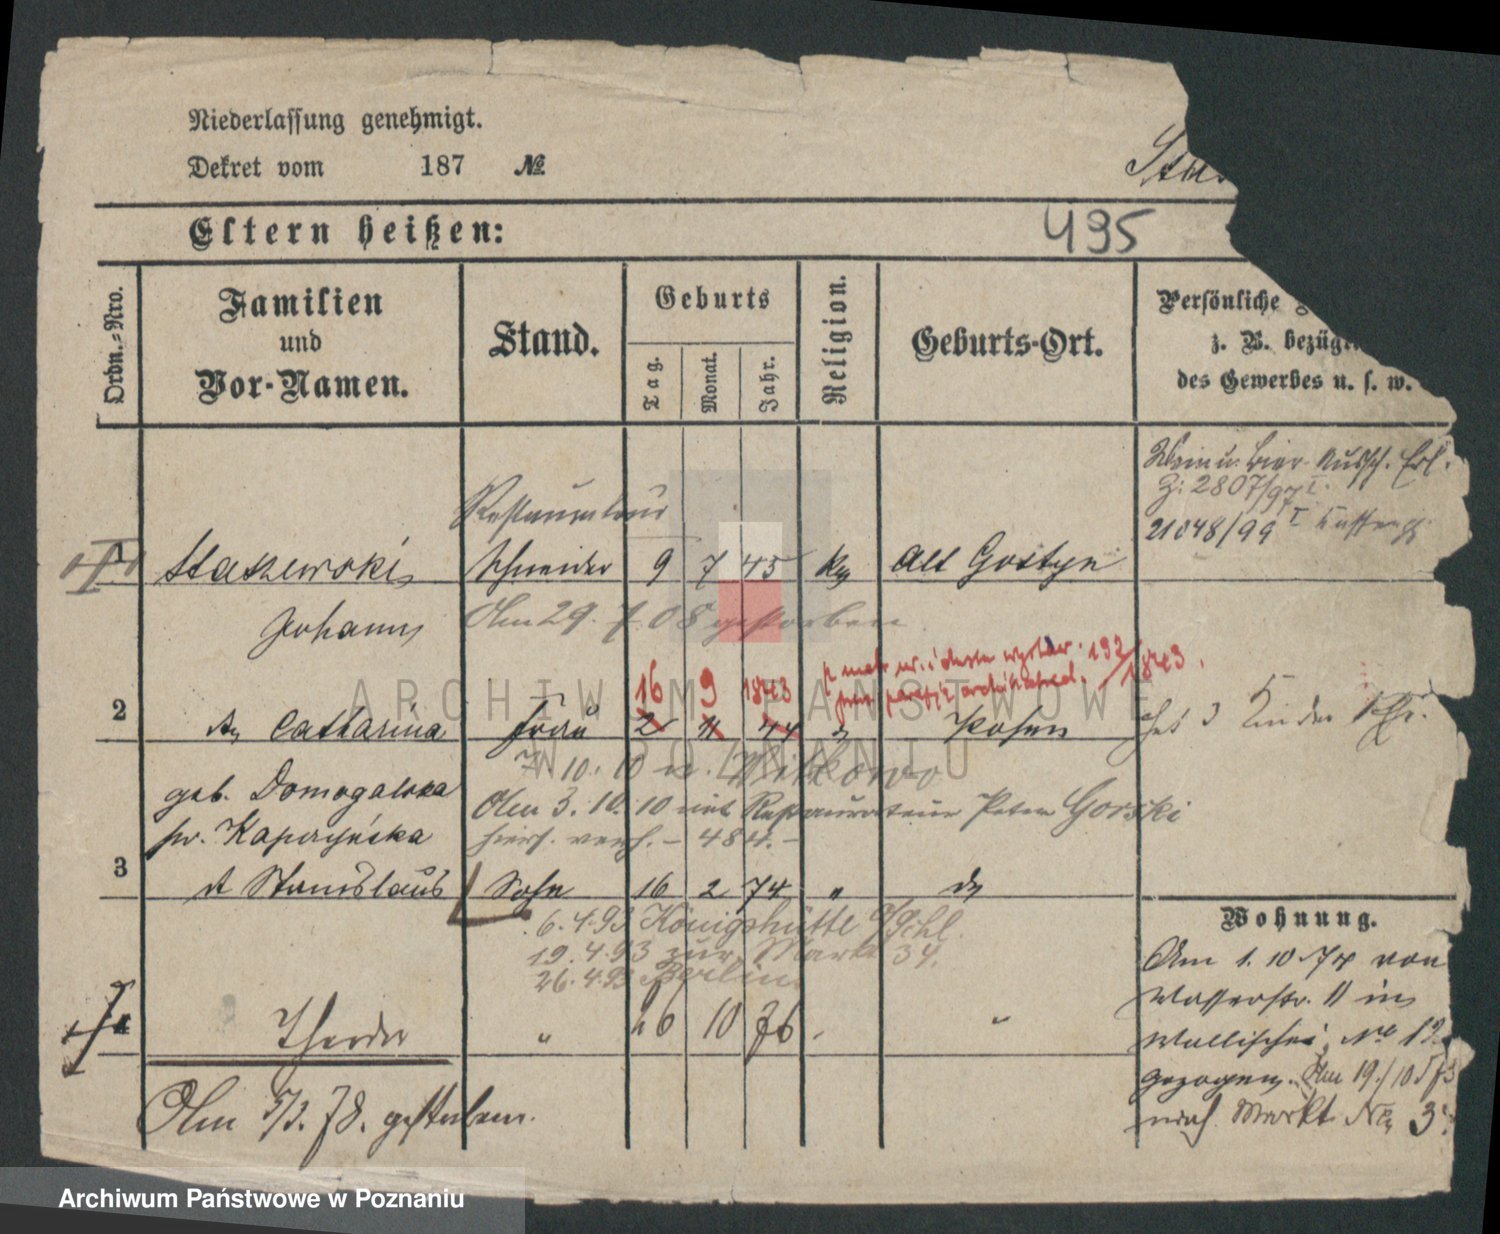 Niederlassung genehmigt.
Dekret vom 187 №
Sta
Eltern heißen:
495
Ordn.-Nro.
Familien
und
Vor-Namen.
Stand.
Geburts
Tag.
Monat.
Jahr.
Religion.
Geburts-Ort.
Persönliche
z. B. bezüg
des Gewerbes u. s. w.
Wein u. Bier Aussch. Erl.
Z: 2807/97 I.
21048/99 I
Restaurateur
1 Staszewski Schneider 9 7 45 Alt Gostyn
Johann Am 29. 7. 08 gestorben
16 9 1843
192/1843
2 Catharina Frau 2 11 44 Posen
hat 3 Kinder
7. 10. 10 Witkowo
geb. Domogalska Am 3. 10. 10 mit Restaurateur Peter Gorski
Kaperzyńska hiers. verh. – 484. –
3 Stanislaus Sohn 16 2 74 "
6. 4. 93 Königshütte O/Schl.
19. 4. 93 zur. Markt 34.
26. 4. 93 Berlin
4 Theodor " 26 10 76 "
Am 5/3. 78. gestorben.
Wohnung.
Am 1. 10. 74 von
Wasserstr. 11 in
Wallischei No 12
gezogen. Am 19./10
nach Markt No 3
ARCHIWUM PAŃSTWOWE
W POZNANIU
Archiwum Państwowe w Poznaniu